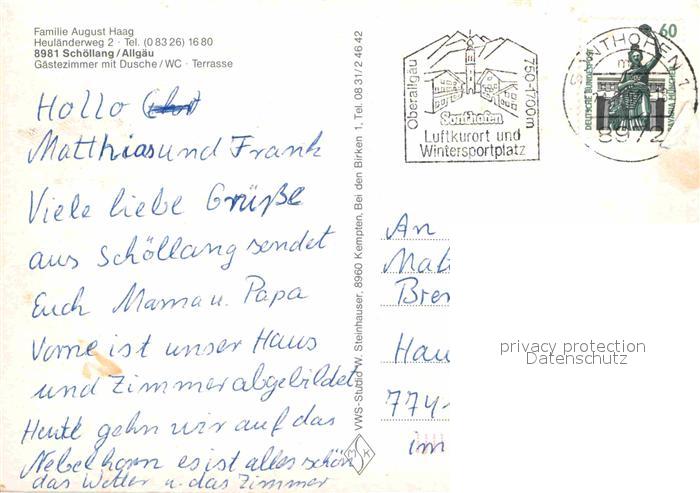 Familie August Haag
Heuländerweg 2 · Tel. (0 83 26) 16 80
8981 Schöllang/Allgäu
Gästezimmer mit Dusche/WC · Terrasse
Hallo
Matthias und Frank
Viele liebe Grüße
aus Schöllang sendet
Euch Mama u. Papa
Vorne ist unser Haus
und Zimmer abgebildet
Heute gehn wir auf das
Nebelhorn es ist alles schön
das Wetter u. das Zimmer
VWS-Studio W. Steinhauser, 8960 Kempten, Bei den Birken 1, Tel. 08 31/2 46 42
MSK
Oberallgäu
750-1700m
Sonthofen
Luftkurort und
Wintersportplatz
SONTHOFEN 1
8972
60
DEUTSCHE BUNDESPOST
An
Mat
Bre
Hau
774
im
privacy protection
Datenschutz